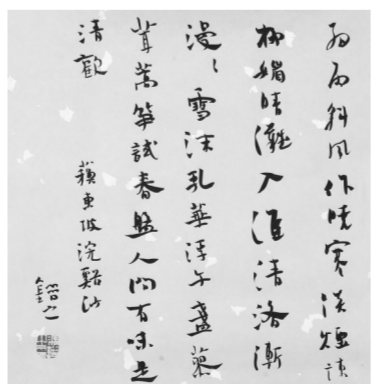 細雨斜風作曉寒淡煙疎
柳媚晴灘入淮清洛漸
漫〻雪沫乳華浮午盞蓼
茸蒿笋試春盤人間有味是
清歡
蘇東坡浣谿沙